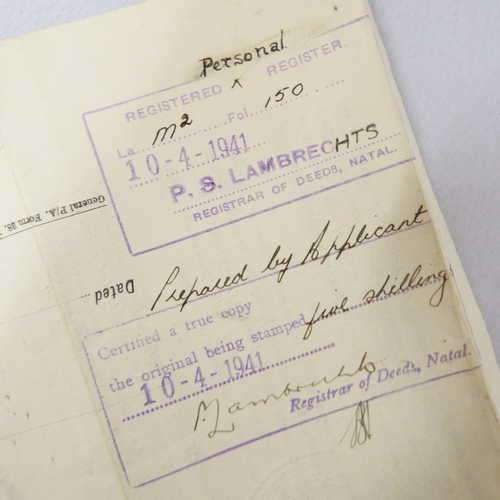 Personal
REGISTERED ^ REGISTER.
La. M2 Fol. 150
10-4-1941
P. S. LAMBRECHTS
REGISTRAR OF DEEDS, NATAL.
General P/A. Form 28.
Dated
Prepared by Applicant
Certified a true copy
the original being stamped five shilling
10-4-1941
Registrar of Deeds, Natal.